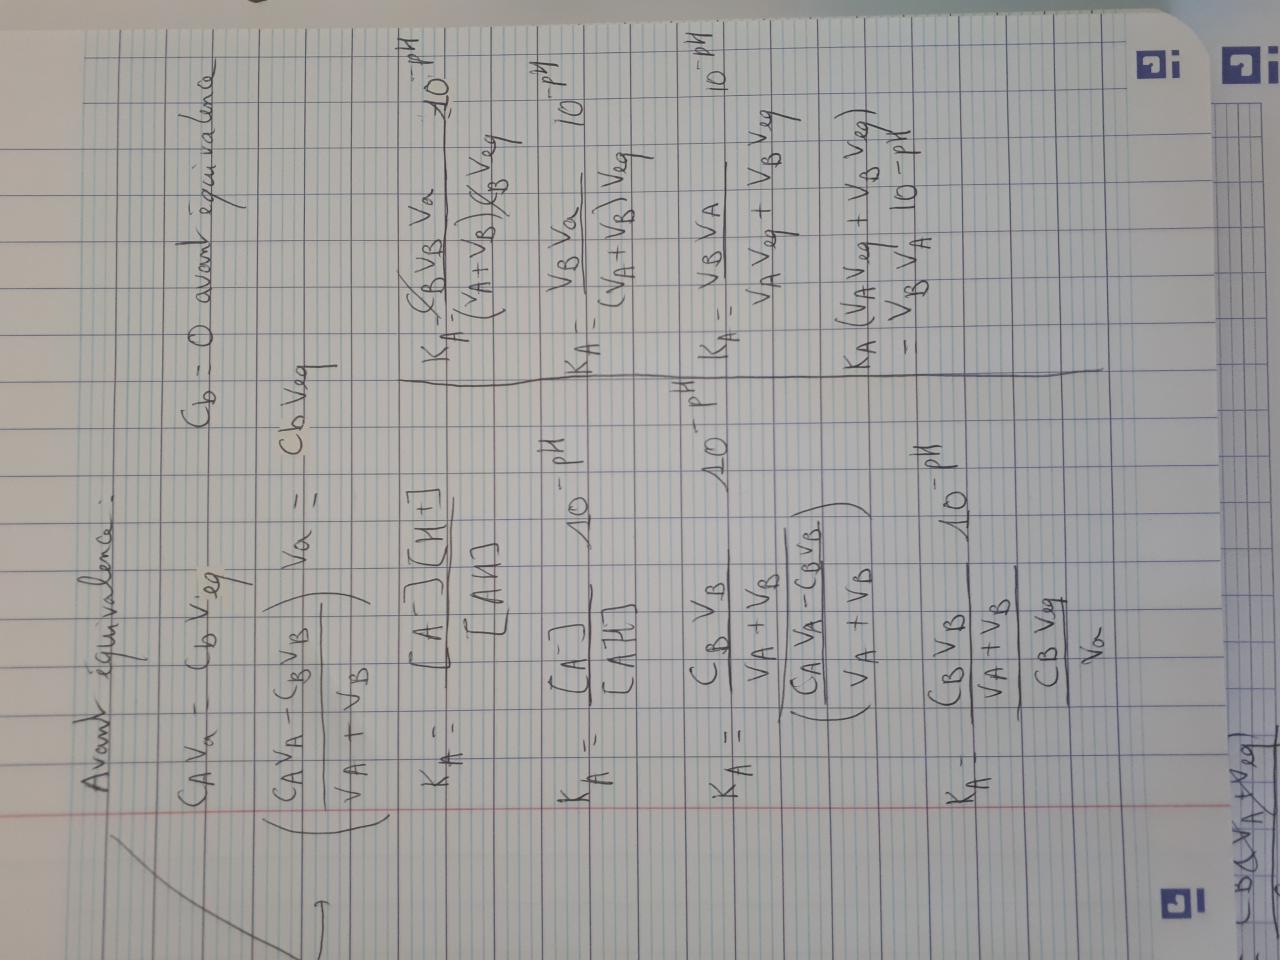 Avant équivalence :
CAVa = CbVeq Cb = 0 avant équivalence
(CAVA - CBVB / VA + VB) Va = CbVeq
KA = [A-][H+] / [AH]
KA = [A-] / [AH] 10^-pH
KA = CBVB / VA + VB / (CAVA - CBVB / VA + VB) 10^-pH
KA = CBVB / VA + VB / CBVeq / Va 10^-pH
KA = CBVBVa / (VA + VB)CBVeq 10^-pH
KA = VBVa / (VA + VB)Veq 10^-pH
KA = VBVA / VAVeq + VBVeq 10^-pH
KA(VAVeq + VBVeq)
= VBVA 10^-pH